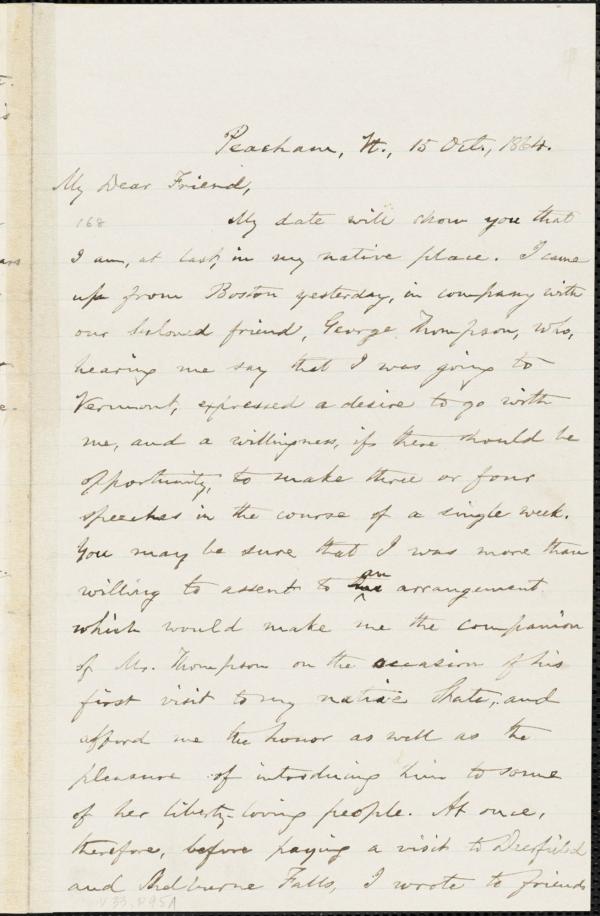 Peacham, Vt., 15 Oct., 1864.
My Dear Friend,
168
My date will show you that
I am, at last, in my native place. I came
up from Boston yesterday, in company with
our beloved friend, George Thompson, who,
hearing me say that I was going to
Vermont, expressed a desire to go with
me, and a willingness, if there should be
opportunity, to make three or four
speeches in the course of a single week.
You may be sure that I was more than
willing to assent to an arrangement
which would make me the companion
of Mr. Thompson on the occasion of his
first visit to my native State, and
afford me the honor as well as the
pleasure of introducing him to some
of her liberty-loving people. At once,
therefore, before paying a visit to Deerfield
and Shelburne Falls, I wrote to friends
v.33.P95A